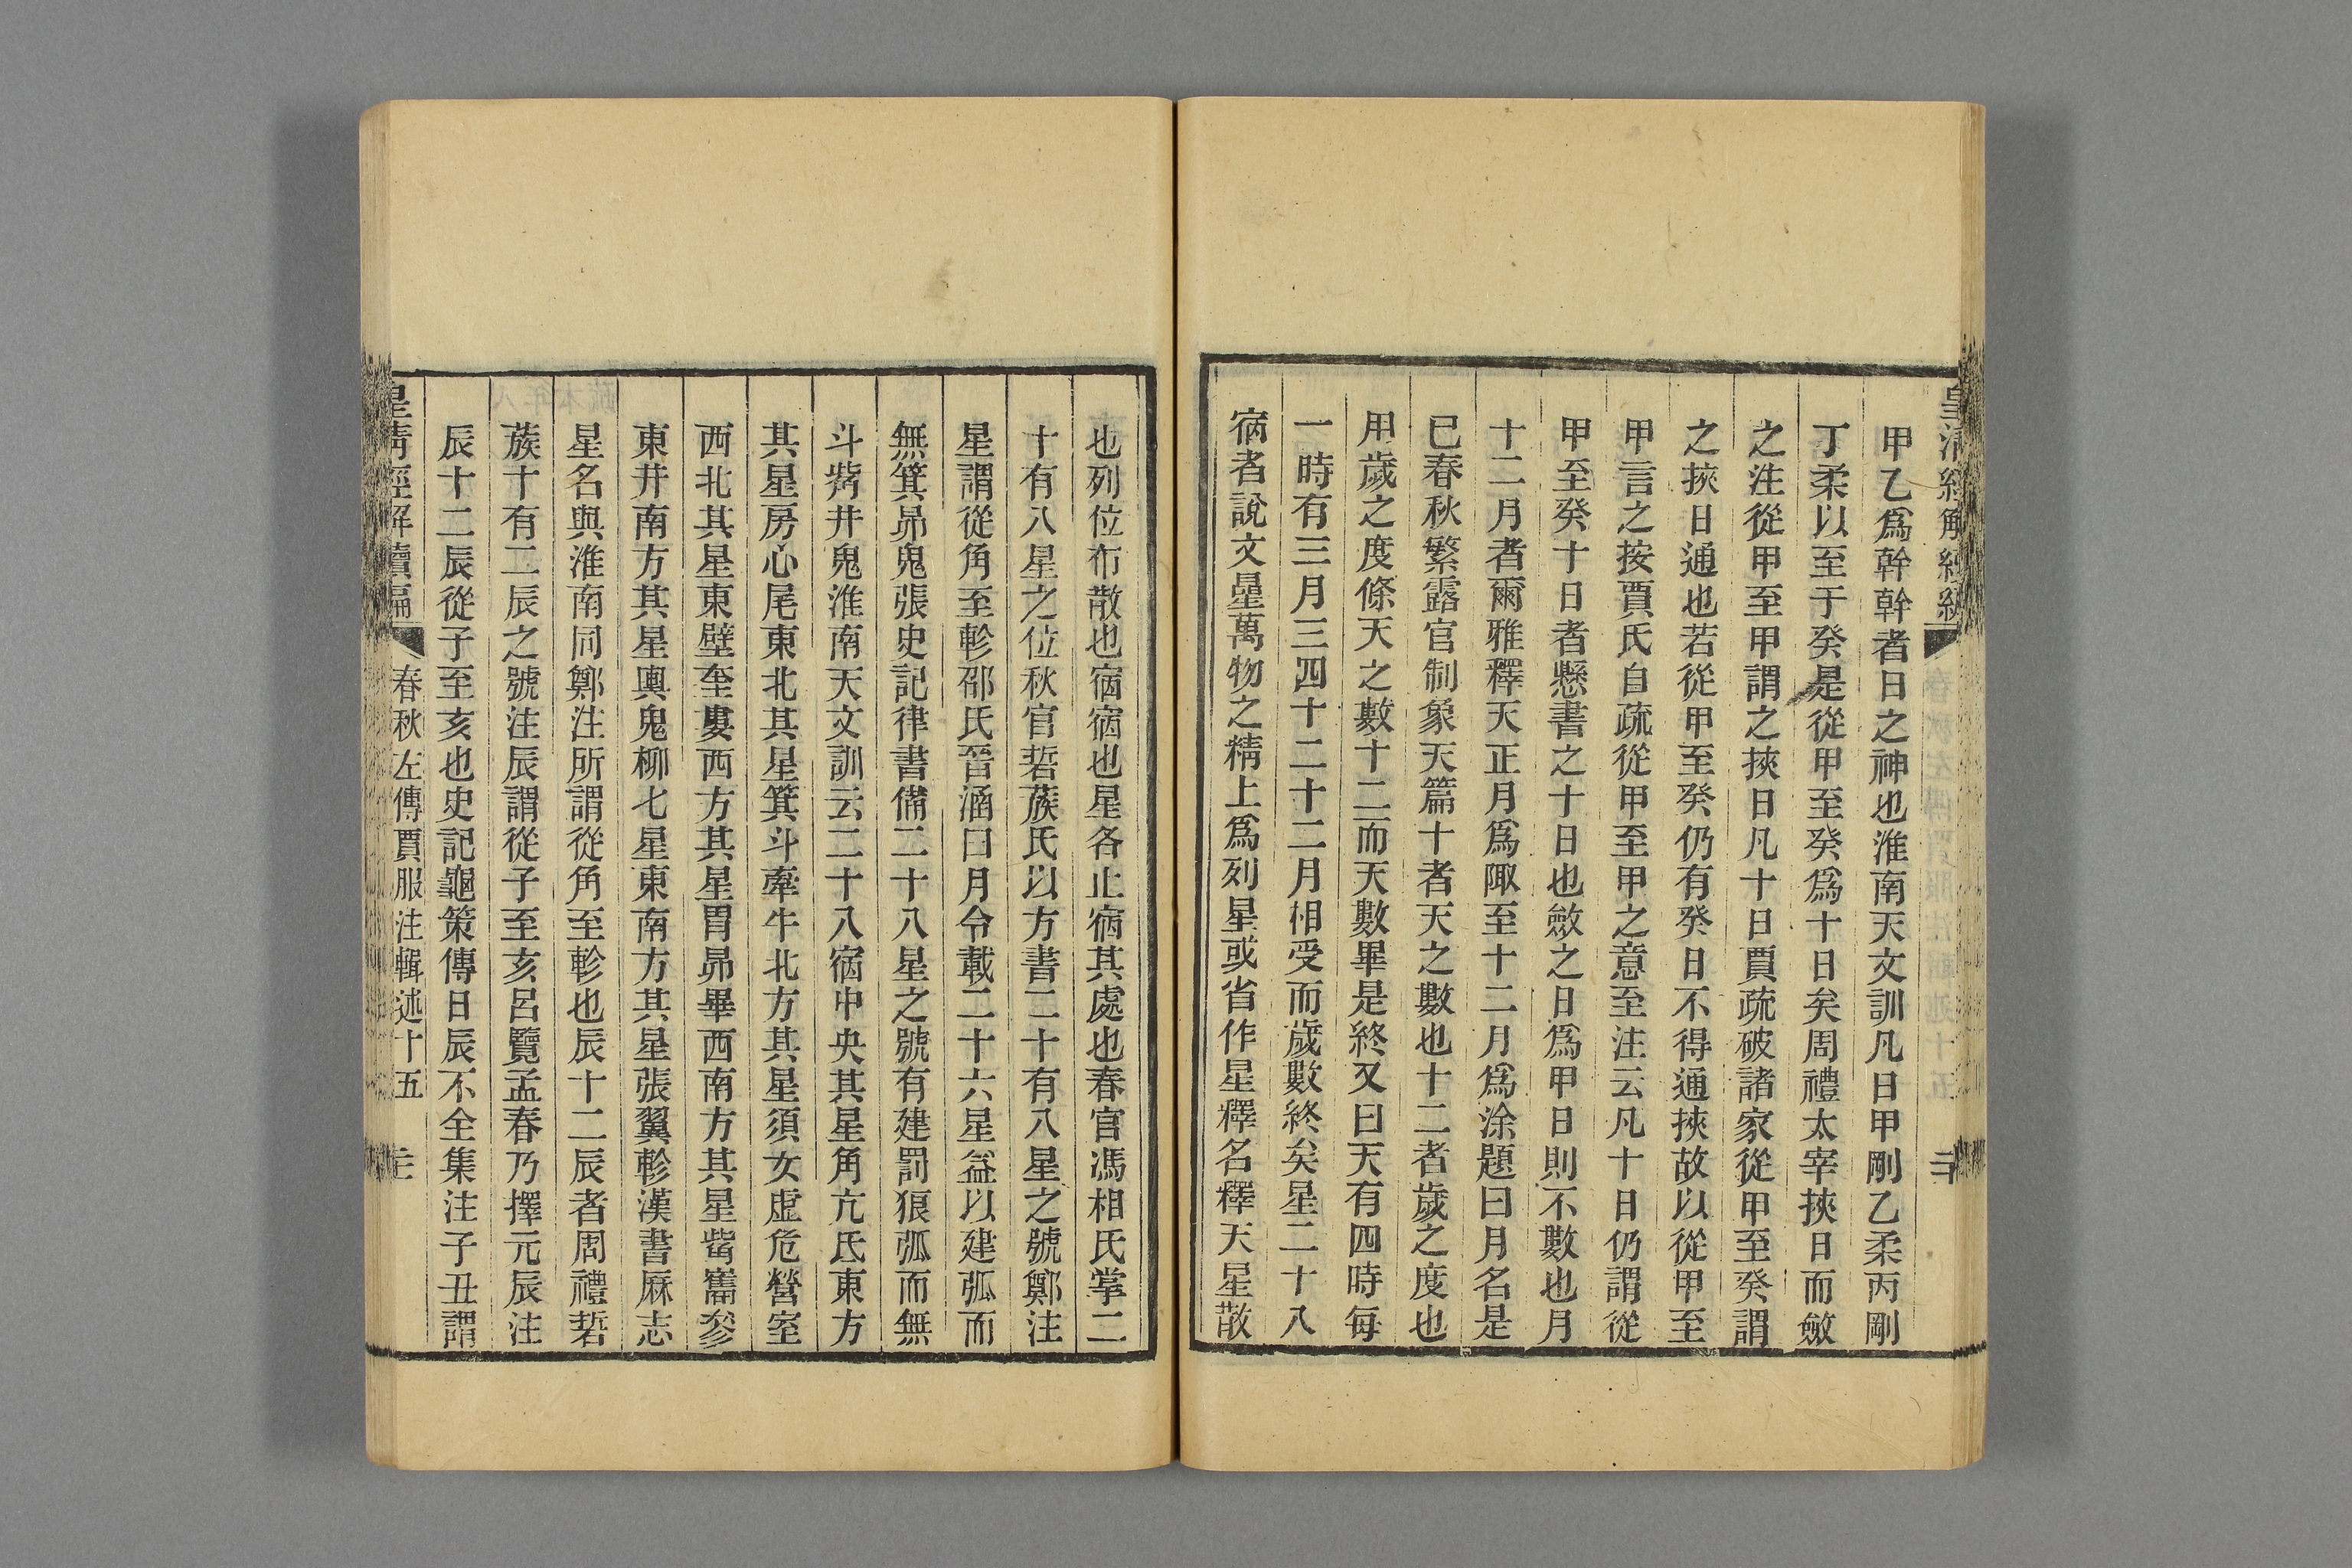 甲乙爲幹幹者日之神也淮南天文訓凡日甲剛乙柔丙剛
丁柔以至于癸是從甲至癸爲十日矣周禮太宰挾日而斂
之注從甲至甲謂之挾日凡十日賈疏破諸家從甲至癸謂
之挾日通也若從甲至癸仍有癸日不得通挾故以從甲至
甲言之按賈氏自疏從甲至甲之意至注云凡十日仍謂從
甲至癸十日者懸書之十日也斂之日爲甲日則不數也月
十二月者爾雅釋天正月爲陬至十二月爲涂題曰月名是
已春秋繁露官制象天篇十者天之數也十二者歲之度也
用歲之度條天之數十二而天數畢是終又曰天有四時每
一時有三月三四十二十二月相受而歲數終矣星二十八
宿者說文曐萬物之精上爲列星或省作星釋名釋天星散
也列位布散也宿宿也星各止宿其處也春官馮相氏掌二
十有八星之位秋官硩蔟氏以方書二十有八星之號鄭注
星謂從角至軫邵氏晉涵曰月令載二十六星益以建弧而
無箕昴鬼張史記律書備二十八星之號有建罰狼弧而無
斗觜井鬼淮南天文訓云二十八宿中央其星角亢氐東方
其星房心尾東北其星箕斗牽牛北方其星須女虛危營室
西北其星東壁奎婁西方其星胃昴畢西南方其星觜巂參
東井南方其星輿鬼柳七星東南方其星張翼軫漢書厤志
星名與淮南同鄭注所謂從角至軫也辰十二辰者周禮硩
蔟十有二辰之號注辰謂從子至亥呂覽孟春乃擇元辰注
辰十二辰從子至亥也史記龜策傳日辰不全集注子丑謂
皇清經解續編
春秋左傳賈服注輯述十五